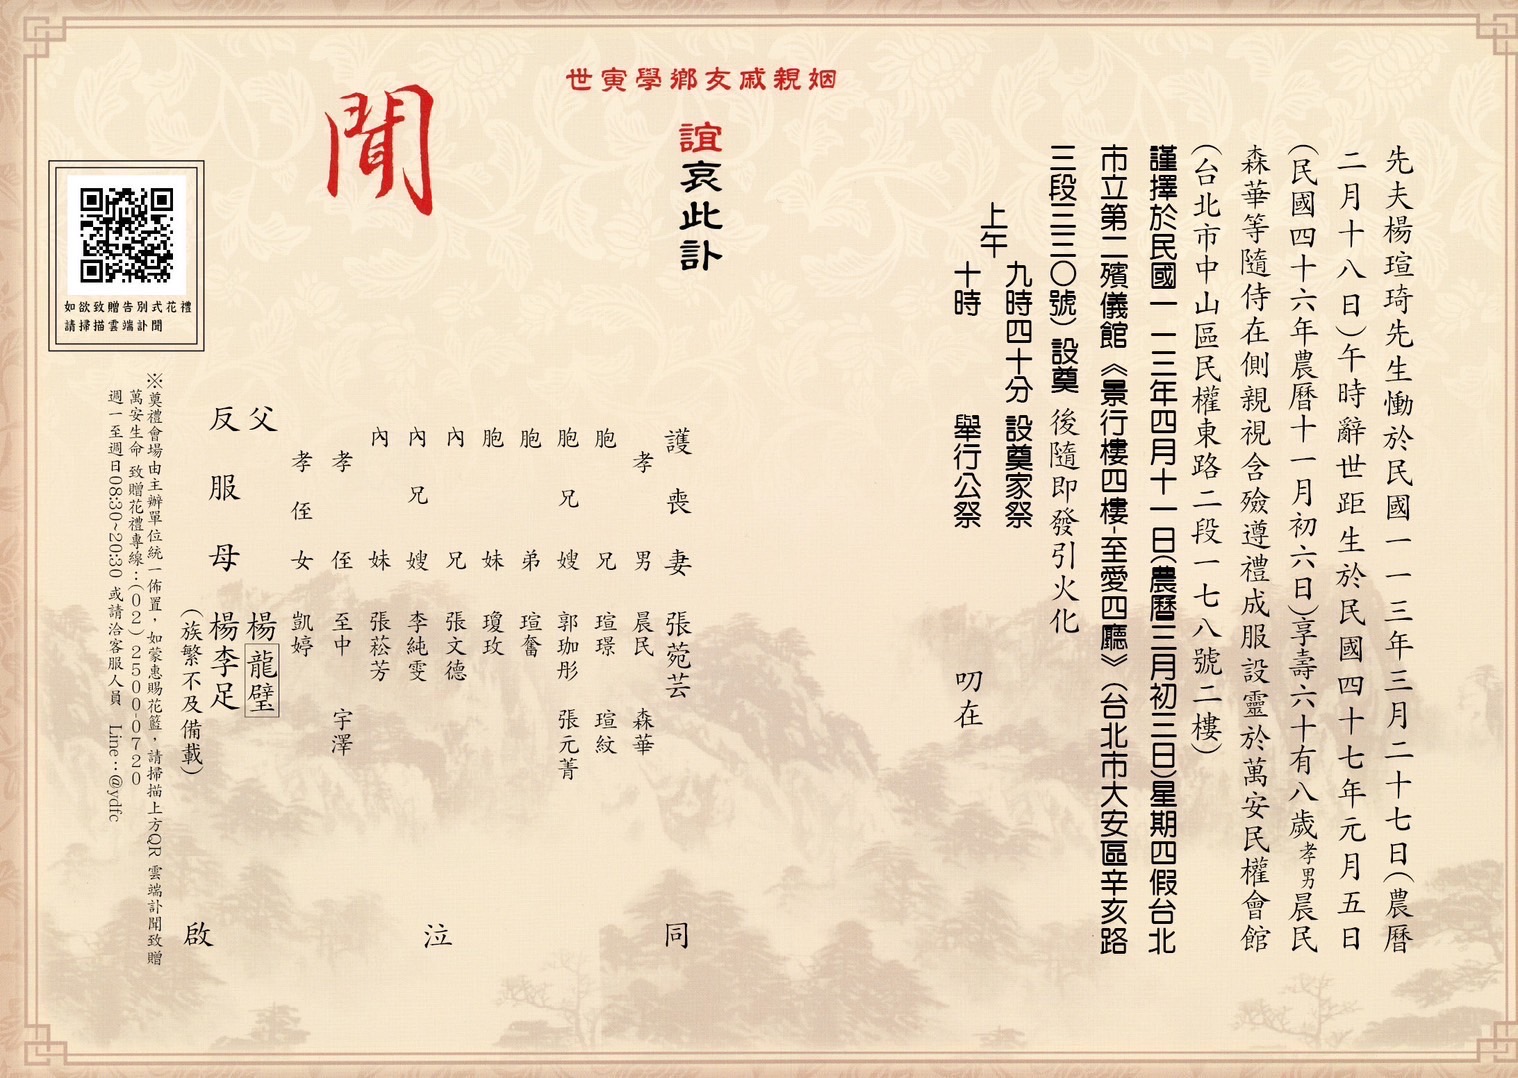 先夫楊瑄琦先生慟於民國一一三年三月二十七日(農曆
二月十八日)午時辭世距生於民國四十七年元月五日
(民國四十六年農曆十一月初六日)享壽六十有八歲孝男晨民
森華等隨侍在側親視含殮遵禮成服設靈於萬安民權會館
(台北市中山區民權東路二段一七八號二樓)
謹擇於民國一一三年四月十一日(農曆三月初三日)星期四假台北
市立第二殯儀館《景行樓四樓-至愛四廳》(台北市大安區辛亥路
三段三三〇號)設奠 後隨即發引火化
上午
九時四十分 設奠家祭
十時 舉行公祭
叨在
姻親戚友鄉學寅世
誼哀此訃
聞
護喪妻 張菀芸
孝男 晨民 森華
胞兄 瑄璟 瑄紋
胞兄嫂 郭珈彤 張元菁
胞弟 瑄奮
胞妹 瓊玫
內兄 張文德
內兄嫂 李純雯
內妹 張菘芳
孝侄 至中 宇澤
孝侄女 凱婷
父 楊龍璧
反服母 楊李足
(族繁不及備載)
同
泣
啟
如欲致贈告別式花禮
請掃描雲端訃聞
※奠禮會場由主辦單位統一佈置，如蒙惠賜花籃，請掃描上方QR 雲端訃聞致贈
萬安生命 致贈花禮專線：(02)2500-0720
週一至週日08:30~20:30 或請洽客服人員 Line：@ydfc